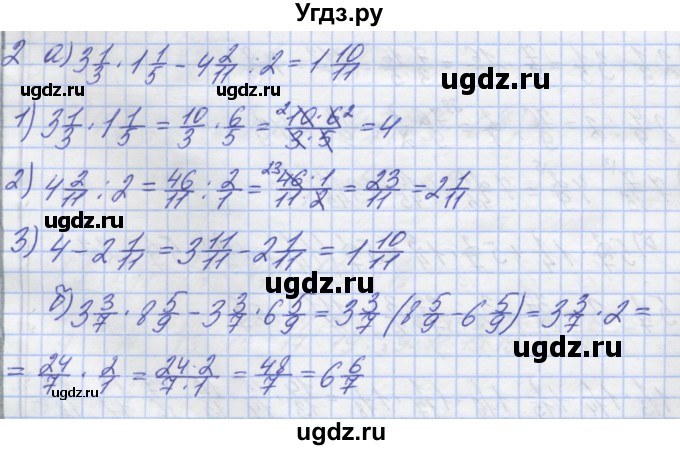 Угдз.ру
2 а) 3 1/3 · 1 1/5 − 4 2/11 : 2 = 1 10/11
ugdz.ru ugdz.ru
1) 3 1/3 · 1 1/5 = 10/3 · 6/5 = 2 10 · 6 2 / 3 · 5 = 4
ugdz.ru
2) 4 2/11 : 2 = 46/11 : 2/1 = 23 46 · 1 / 11 · 2 = 23/11 = 2 1/11
ugdz.ru ugdz.ru
3) 4 − 2 1/11 = 3 11/11 − 2 1/11 = 1 10/11
ugdz.ru
б) 3 3/7 · 8 5/9 − 3 3/7 · 6 5/9 = 3 3/7 (8 5/9 − 6 5/9) = 3 3/7 · 2 =
ugdz.ru
= 24/7 · 2/1 = 24 · 2 / 7 · 1 = 48/7 = 6 6/7
ugdz.ru
ugdz.ru